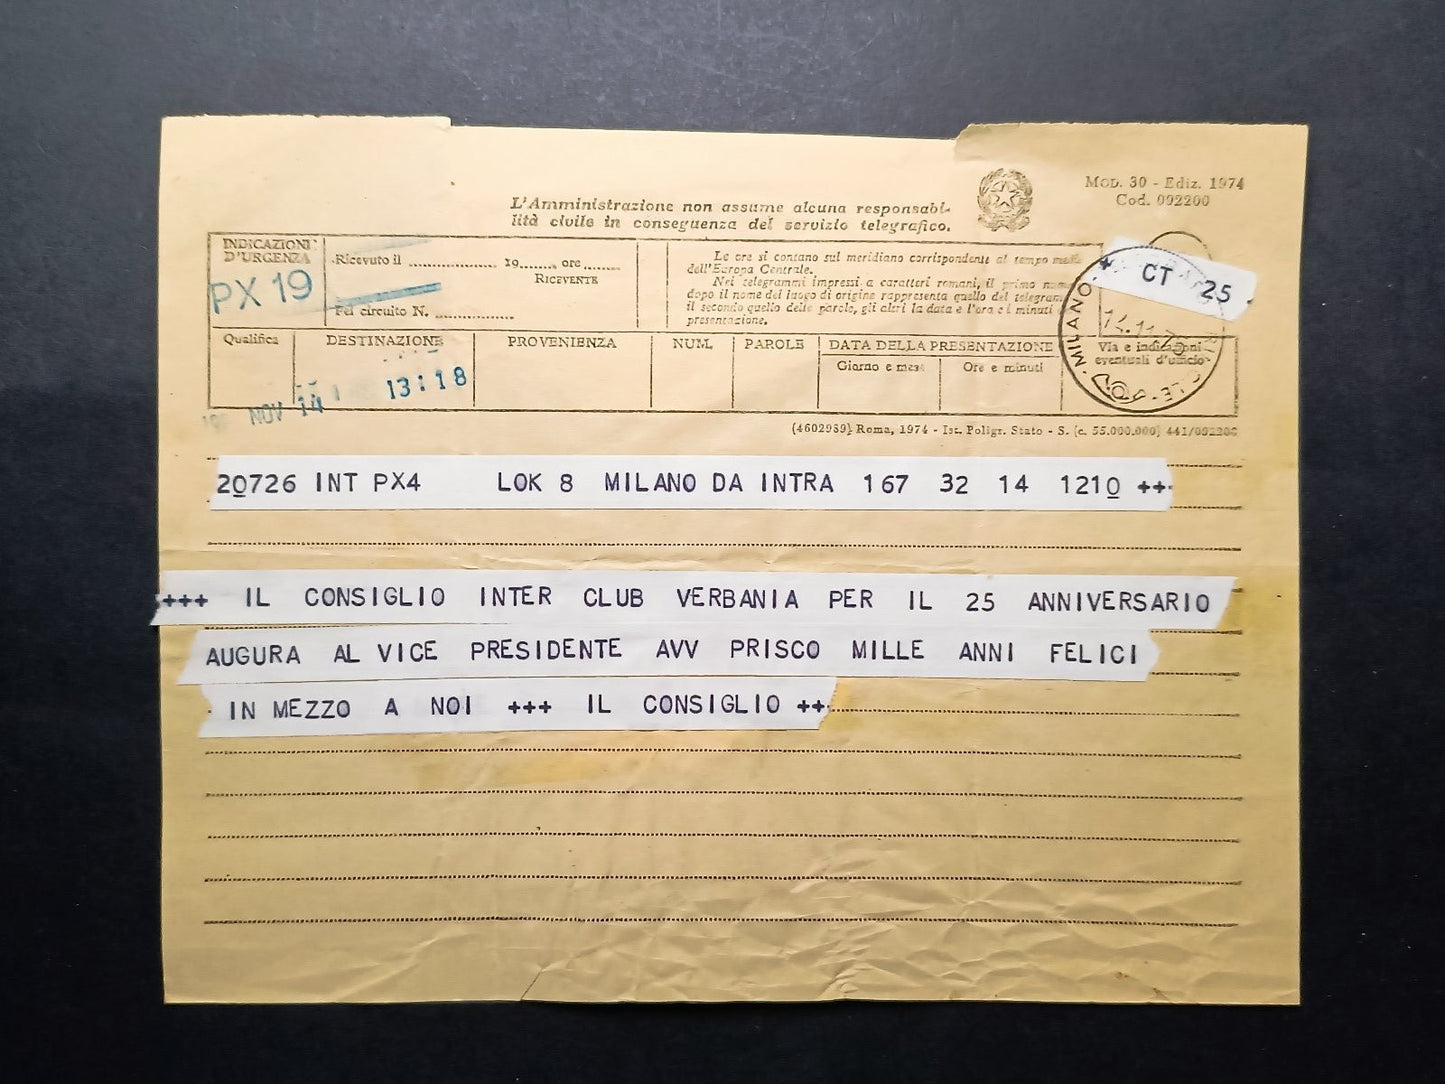 Mod. 30 - Ediz. 1974
Cod. 092200
L'Amministrazione non assume alcuna responsabi-
lità civile in conseguenza del servizio telegrafico.
INDICAZIONI
D'URGENZA
PX 19
Ricevuto il 19 ore
RICEVENTE
Pel circuito N.
Le ore si contano sul meridiano corrispondente al tempo medio
dell'Europa Centrale.
Nei telegrammi impressi a caratteri romani, il primo nume
dopo il nome del luogo di origine rappresenta quello del telegram
il secondo quello delle parole, gli altri la data e l'ora e i minuti
presentazione.
CT 25
MILANO
14.11.75
Qualifica
DESTINAZIONE
PROVENIENZA
NUM.
PAROLE
DATA DELLA PRESENTAZIONE
Giorno e mese
Ore e minuti
Via e indicazioni
eventuali d'ufficio
NOV 14 13:18
(4602989) Roma, 1974 - Ist. Poligr. Stato - S. (c. 55.000.000) 441/092200
20726 INT PX4 LOK 8 MILANO DA INTRA 167 32 14 1210 ++
+++ IL CONSIGLIO INTER CLUB VERBANIA PER IL 25 ANNIVERSARIO
AUGURA AL VICE PRESIDENTE AVV PRISCO MILLE ANNI FELICI
IN MEZZO A NOI +++ IL CONSIGLIO ++